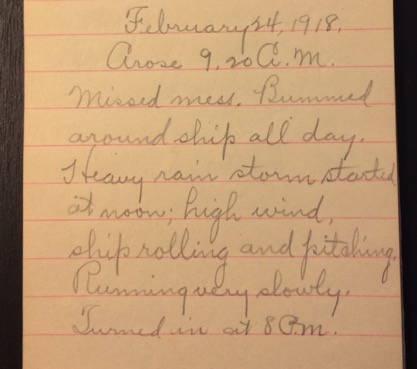 February 24, 1918.
Arose 9.20 A.M.
Missed mess. Bummed
around ship all day.
Heavy rain storm started
at noon; high wind,
ship rolling and pitching.
Running very slowly.
Turned in at 8 P.m.